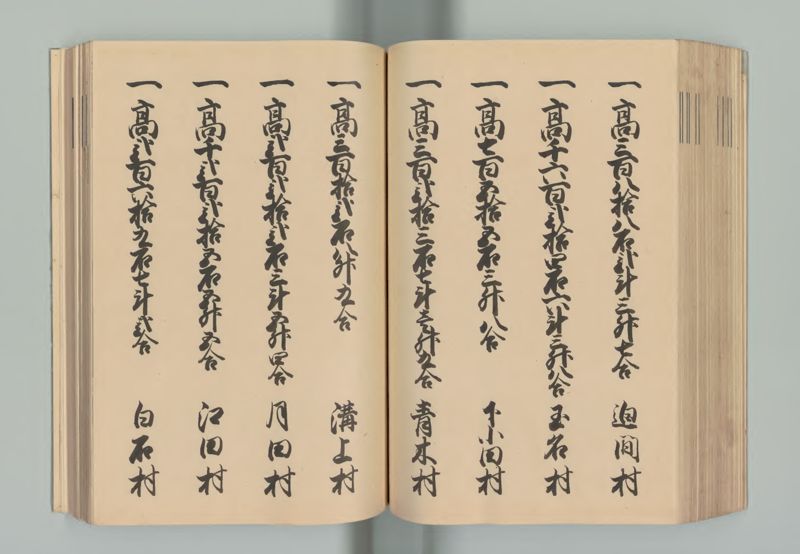 一高三百八拾八石弐斗三升七合 迫間村
一高千六百弐拾四石六斗三升八合 玉名村
一高七百五拾五石三升八合 下小田村
一高三百弐拾三石七斗壱升九合 青木村
一高三百拾弐石八升九合 溝上村
一高弐百弐拾弐石三斗五升四合 月田村
一高千弐百弐拾五石五升五合 江田村
一高弐百六拾九石七斗弐合 白石村